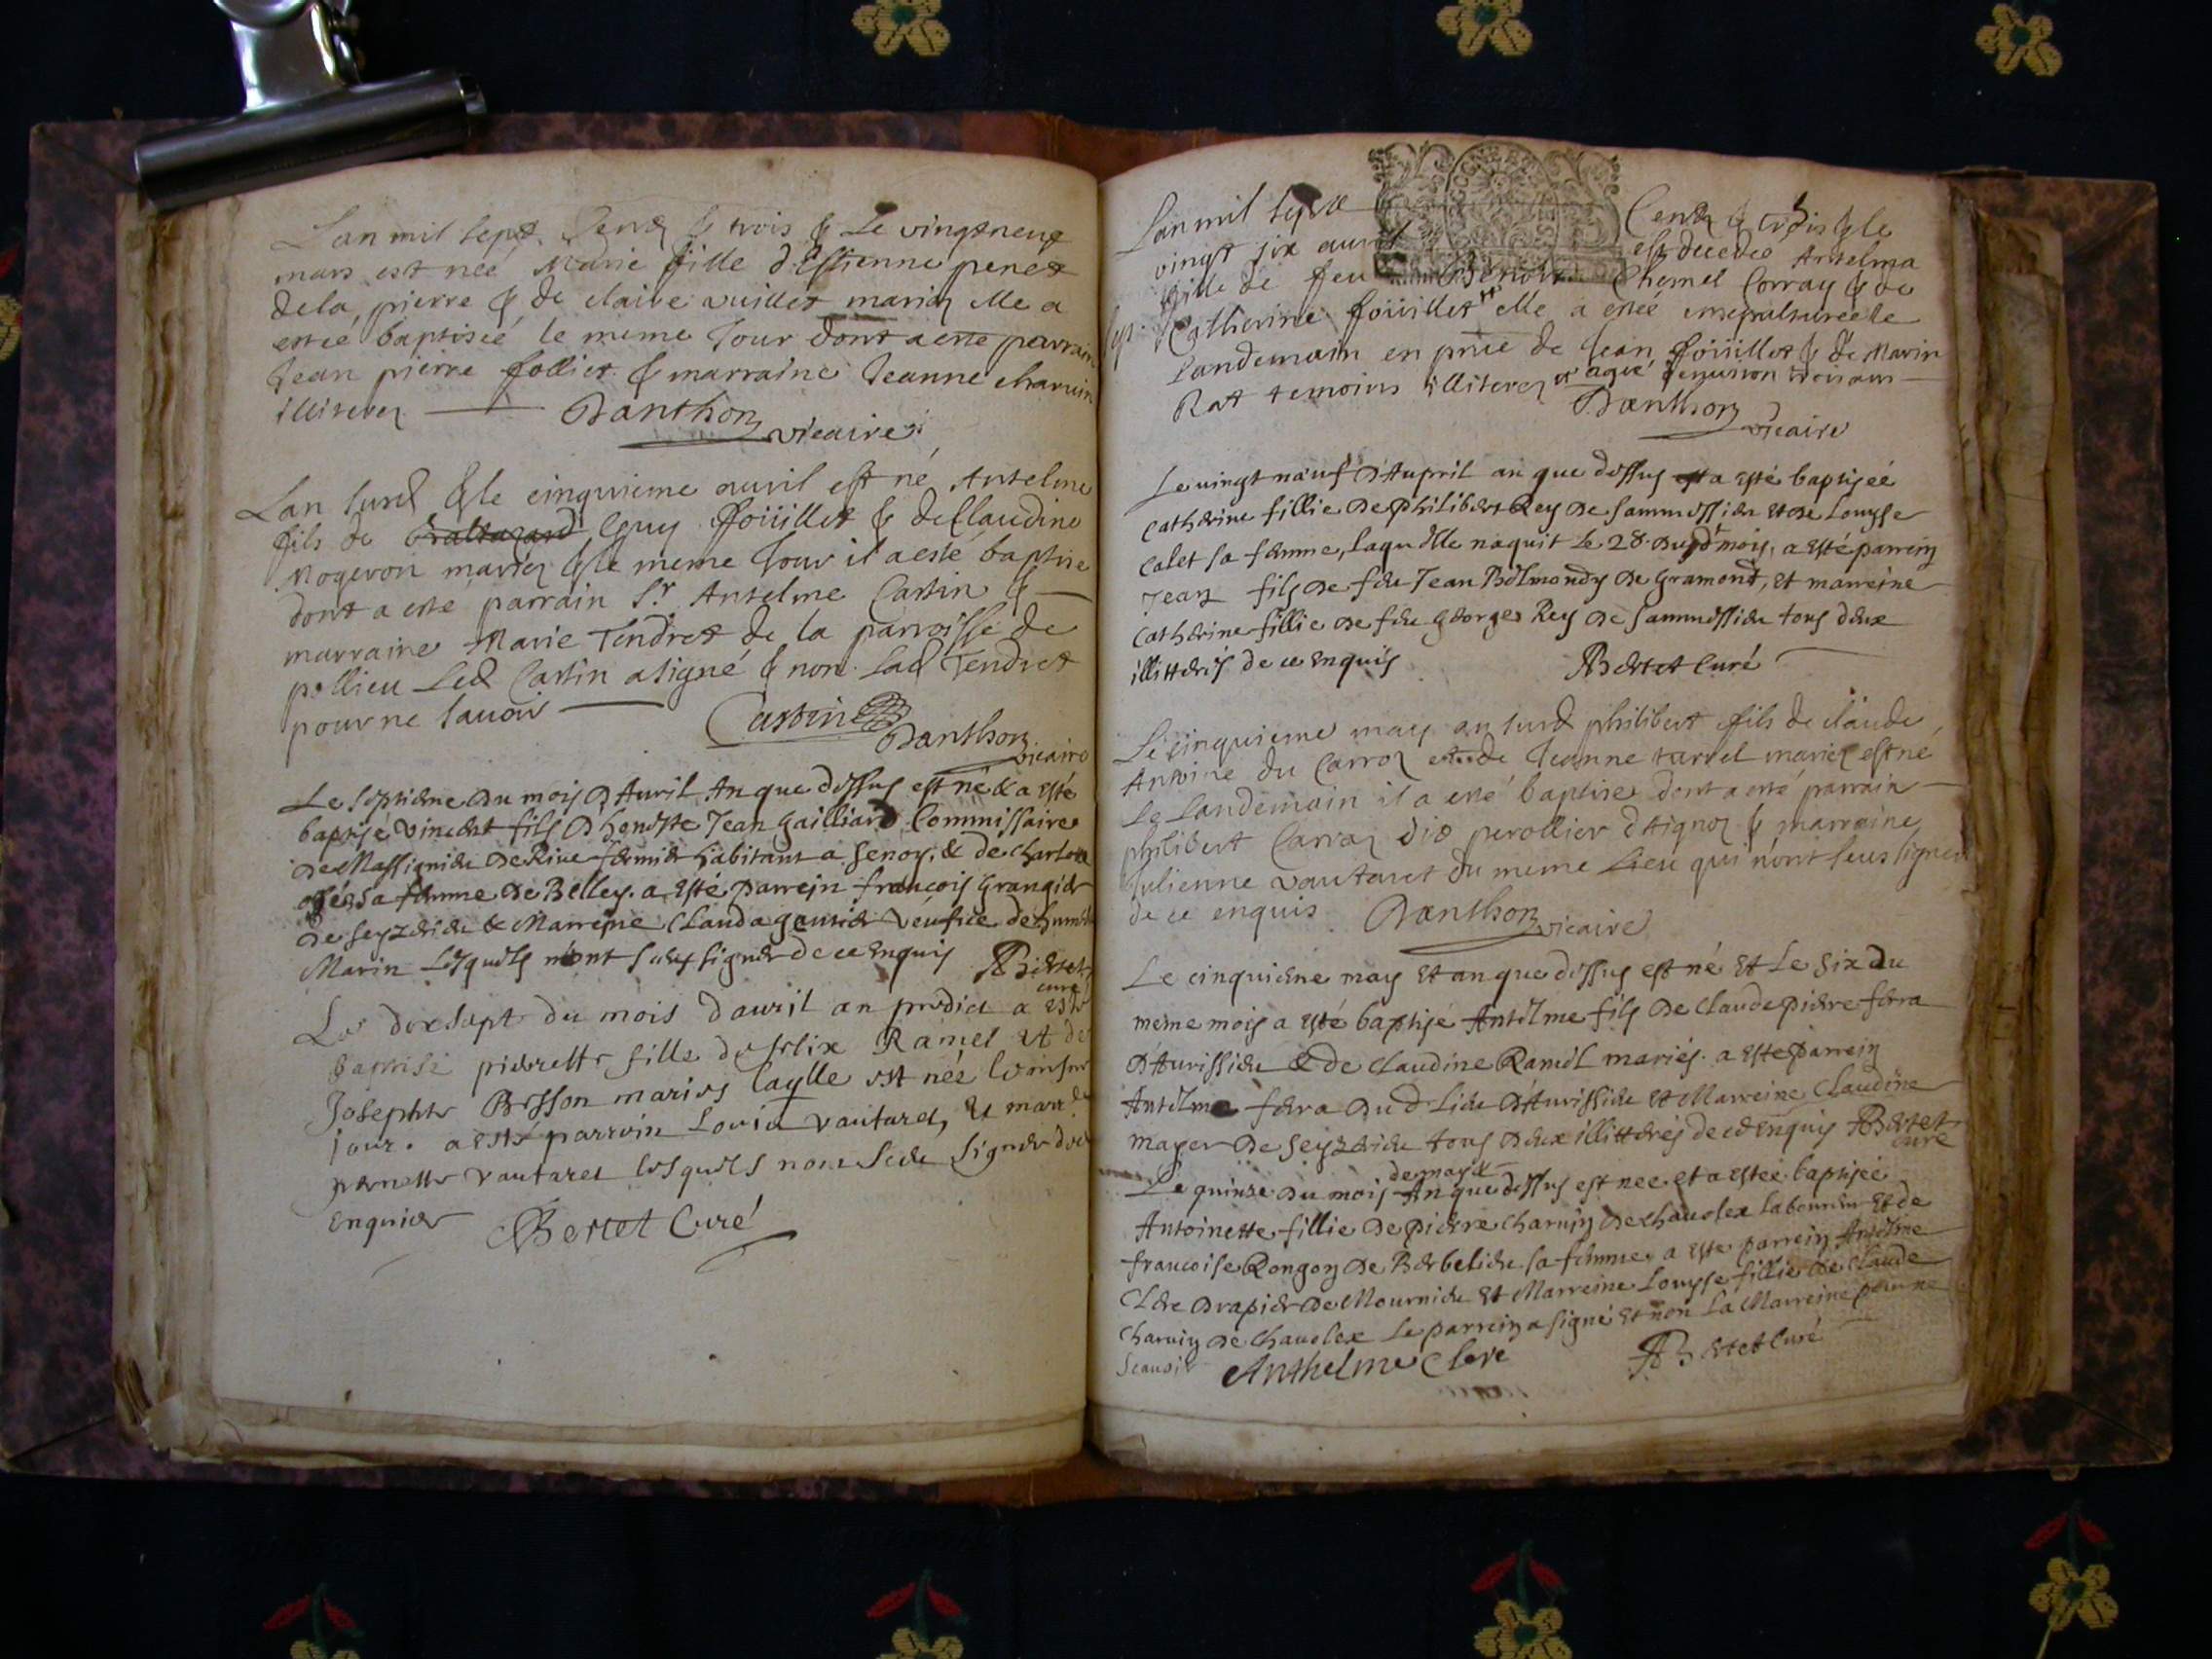 Lan mil sept Cent & trois & Le vingtneuf
mars est neé Marie fille d'Estienne penet
de la pierre & de claire vuillet mariez elle a
esteé baptiseé le meme Jour dont a esté parrain
Jean pierre folliet & marraine Jeanne charvin
illiterez Danthon
vicaire
Lan surd & le cinquieme auril est né Antelme
fils de Baltazard Guy foüillet & de Claudine
Mogeron mariez & le meme Jour il a esté baptise
dont a esté parrain Sr Antelme Castin &
marraine Marie Tendret de la parroisse de
pollieu Led Castin a signé & non lad Tendret
pour ne sauoir
Castin
Danthon
vicaire
Le septieme du mois d'Auril An que dessus est né & a esté
baptisé Vincent fils d'honeste Jean Gailliard Commissaire
de Massignieu habitant a Senoy, & de Charlotte
sa femme de Belley. a esté parrein françois Grangier
de Seyzerieu & Marreine Clauda veufue de
Marin Lesquels n'ont sceu signer de ce enquis ABertet
curé
Le dixsept du mois d'auril an predict a esté
Baptisé pierrette fille de felix Ramel et de
Josephte Besson mariés laqlle est née
jour. a esté parrein Louis Vautaret, et marr.
pernette Vautaret lesquels nont sceu signer de ce
enquier ABertet Curé
Lan mil sept Cent & trois & le
vingt six auril est decedeé Antelma
fille de feu Benoit Themel Corray & de
Catherine foüillet elle a esteé ensepultureé le
Landemain en pñce de Jean foüillet & de Marin
Rat temoins illiterez et ageé denuiron trois ans
Danthon
vicaire
Le vingt nœuf d'Aupril an que dessus est a esté baptiseé
Catherine fillie de Philibert Rey de Sammessieu et de Louyse
Calet sa femme, laquelle naquit le 28. dud mois, a esté parrein
Jean fils de feu Jean Belmondy de Gramont, et marreine
Catherine fillie de feu George Rey de Sammessieu tous deux
illitterés de ce enquis ABertet Curé
Le cinquieme may an surd philibert fils de claude
Antoine du Carroz et de Jeanne tarrel mariez est né
Le landemain il a esté baptise dont a esté parrain
philibert Carraz dit perollier d'Aignoz & marraine
Julienne vautaret du meme Lieu qui n'ont sceus signer
de ce enquis Danthon vicaire
Le cinquieme may et an que dessus est né et Le six du
meme mois a esté baptisé Antelme fils de Claude pierre ferra
d'Aurissieu & de Claudine Ramel mariés. a esté parrein
Antelme ferra dud Lieu d'Aurissieu et Marreine Claudine
mager de Seyzerieu tous deux illitterés de ce enquis ABertet
curé
de may &
Le quinze du mois An que dessus est neé et a esteé baptiseé
Antoinette fillie de pierre Charuin de chauolex laboureur et de
francoise Rongon de Berbelieu sa femme a esté parrein Antelme
Clere drapier de Mournieu et Marreine Louyse fillie de Claude
Charuin de Chauolex Le parrein a signé et non La Marreine pour ne
scauoir Anthelme Clere ABertet Curé